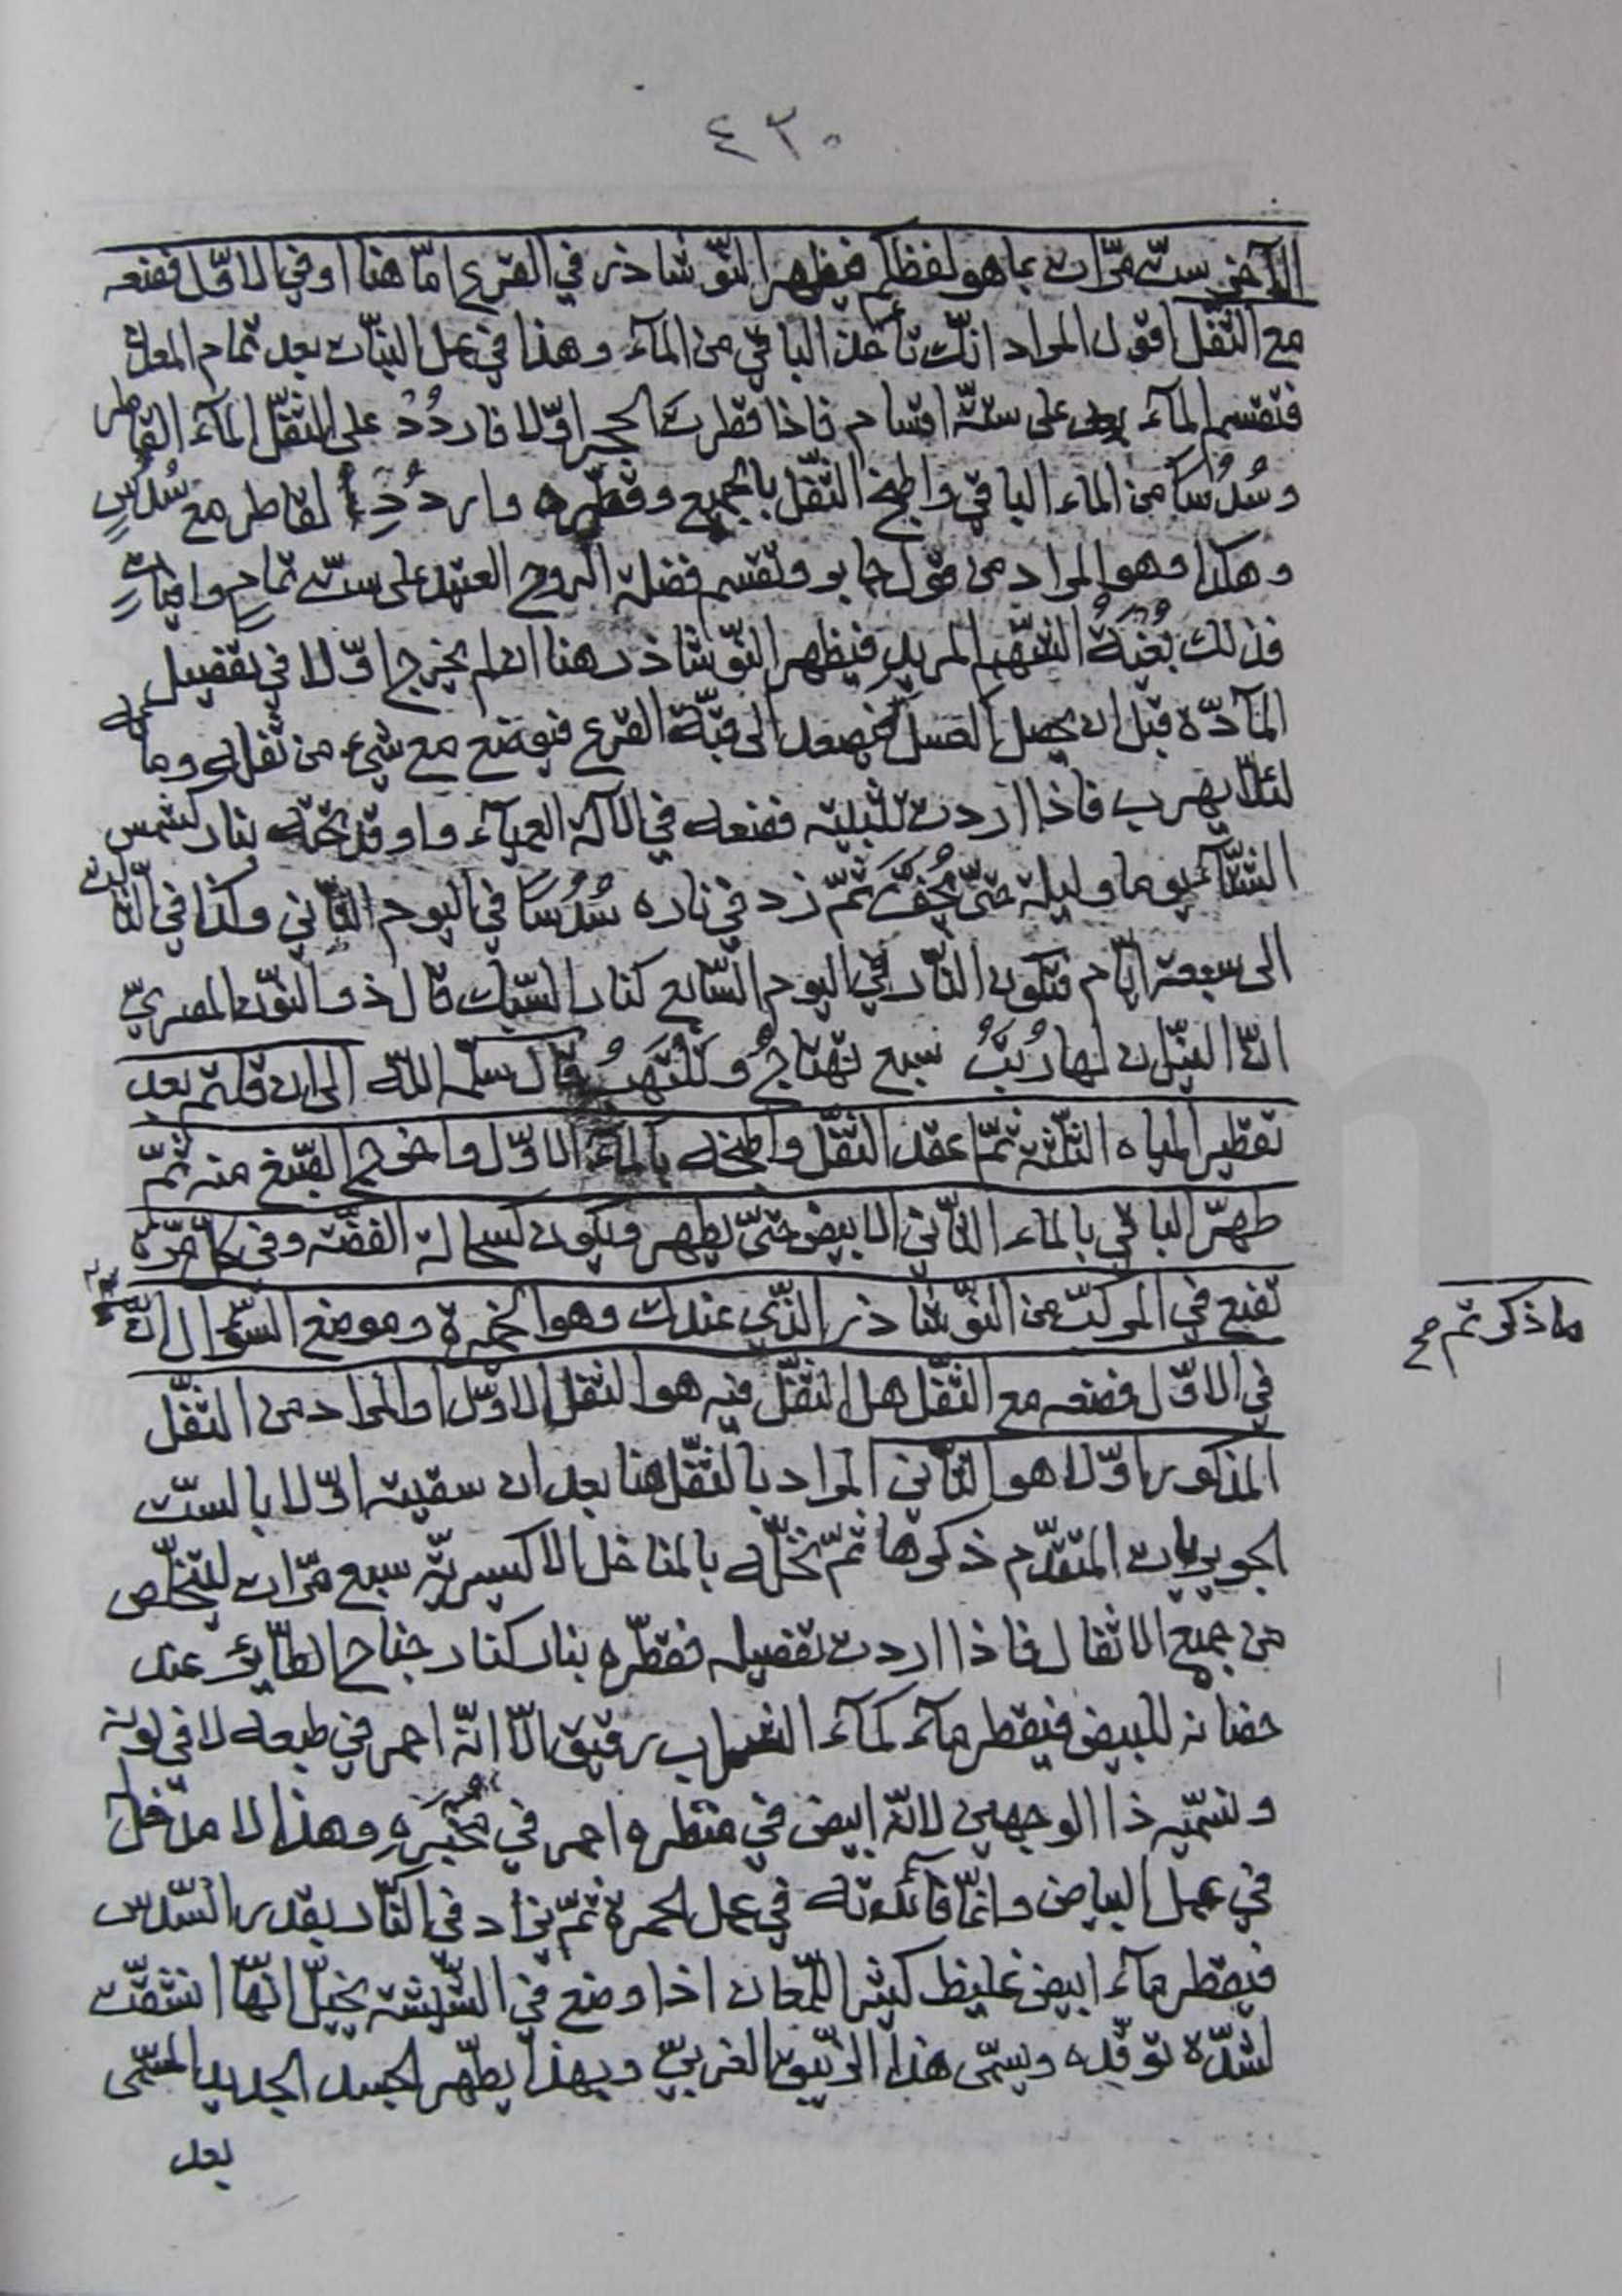 ٤٣٠
الآخر ستّ مرّات بما هو لفظكم فيظهر النّوشاذر في القرع امّا هنا او في الاوّل فضعه
مع الثّفل اقول المراد انّك تأخذ الباقي من المآء وهذا في عمل النبات بعد تمام المعدن
فتقسم المآء على ستّة اقسام فاذا قطرت الحجر اوّلا فاردُدْ على الثّفل المآء القاطر
وسُدُسًا من الماء الباقي واطبخ الثّفل بالجميع وقطّره واردُدِ القاطر مع سُدُسٍ
وهكذا وهو المراد من قول جابر وتقسم فضلة الروح العتيد على ستّ تمام وافيات
فذلك بُغْيَةُ الشّهم المريد فيظهر النّوشاذر هنا ان لم يخرج اوّلا في تفصيل
المآدّة قبل ان يحصل الغسل فيصعد الى قبّة القرع فيوضع مع شيء من ثفله ومائه
لئلّا يهرب فاذا اردت تثبيته فضعه في الآلة العمياء واوقد تحته بنار كشمس
الشّتآء يوما وليلة حتّى يجفّ ثمّ زد في ناره سُدُسًا في اليوم الثّاني وكذا في الثّالث
الى سبعة ايّام فتكون النّار في اليوم السّابع كنار السّبك قال ذو النّون المصريّ
انّ النيران لها رُتَبُ سبع تهتاج وتلتهبُ قال سلّمه اللّه الى ان قلتم بعد
تقطير المياه الثّلثة ثمّ اعقد الثّفل واطبخه بالمآء الاوّل واخرج الصّبغ منه ثمّ
طهّر الباقي بالماء الثّاني الابيض حتّى يطهر ويكون كسحالة الفضّة وفي كل مرّة
تضع في المركّب من النّوشاذر الّذي عندك وهو الخميرة وموضع السّؤال انّ
ما ذكرتم صح
في الاوّل فضعه مع الثّفل هل الثّفل فيه هو الثّفل الاوّل او المراد من الثّفل
المذكور اوّلا هو الثّاني المراد بالثّفل هنا بعد ان سقيته اوّلا بالستّ
المتقدّم ذكرها ثمّ نخّله بالمناخل الاكسيريّة سبع مرّات ليتخلّص
من جميع الاثفال فاذا اردت تفصيله فقطّره بنار كنار جناح الطّائر عند
حضانه للبيض فيقطر مآء كمآء رقيق الّا انّه احمر في طبعه لا في لونه
ونسمّيه ذا الوجهين لانّه ابيض في منظره احمر في مَخْبَرِهِ وهذا لا مدخل
في عمل البياض وانّما فائدته في عمل الحمرة ثمّ يزاد في النّار بقدر السّدس
فيقطر مآء ابيض غليظ كثير اللّمعان اذا وضع في الشّيشة يخيّل انّها انشقّت
لشدّة توقّده ويسمّى هذا الزّيبق الغربيّ وبهذا يطهّر الجسد الجديد المسمّى
بعد